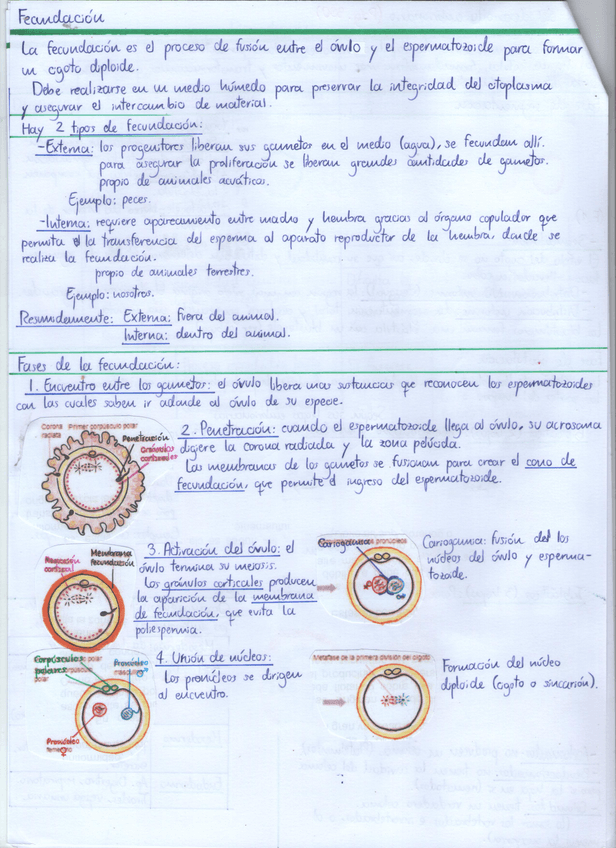 Fecundación
La fecundación es el proceso de fusión entre el óvulo y el espermatozoide para formar
un cigoto diploide.
Debe realizarse en un medio húmedo para preservar la integridad del citoplasma
y asegurar el intercambio de material.
Hay 2 tipos de fecundación:
-Externa: los progenitores liberan sus gametos en el medio (agua), se fecundan allí.
para asegurar la proliferación se liberan grandes cantidades de gametos.
propio de animales acuáticos.
Ejemplo: peces.
-Interna: requiere apareamiento entre macho y hembra gracias al órgano copulador que
permita la transferencia del esperma al aparato reproductor de la hembra, donde se
realiza la fecundación.
propio de animales terrestres.
Ejemplo: nosotros.
Resumidamente: Externa: fuera del animal.
Interna: dentro del animal.
Fases de la fecundación:
1. Encuentro entre los gametos: el óvulo libera unas sustancias que reconocen los espermatozoides
con las cuales saben ir adonde al óvulo de su especie.
Corona radiata
Primer corpúsculo polar
Penetración
Gránulos corticales
2. Penetración: cuando el espermatozoide llega al óvulo, su acrosoma
digiere la corona radiada y la zona pelúcida.
Las membranas de los gametos se fusionan para crear el cono de
fecundación, que permite el ingreso del espermatozoide.
Reacción cortical
Membrana fecundación
3. Activación del óvulo: el
óvulo termina su meiosis.
Los gránulos corticales producen
la aparición de la membrana
de fecundación, que evita la
poliespermia.
Cariogamia
pronúcleos
Cariogamia: fusión de los
núcleos del óvulo y esperma-
tozoide.
Corpúsculos polares
polar
Pronúcleo masculino ♂
Pronúcleo femenino ♀
4. Unión de núcleos:
Los pronúcleos se dirigen
al encuentro.
Metafase de la primera división del cigoto
Formación del núcleo
diploide (cigoto o sincarión).